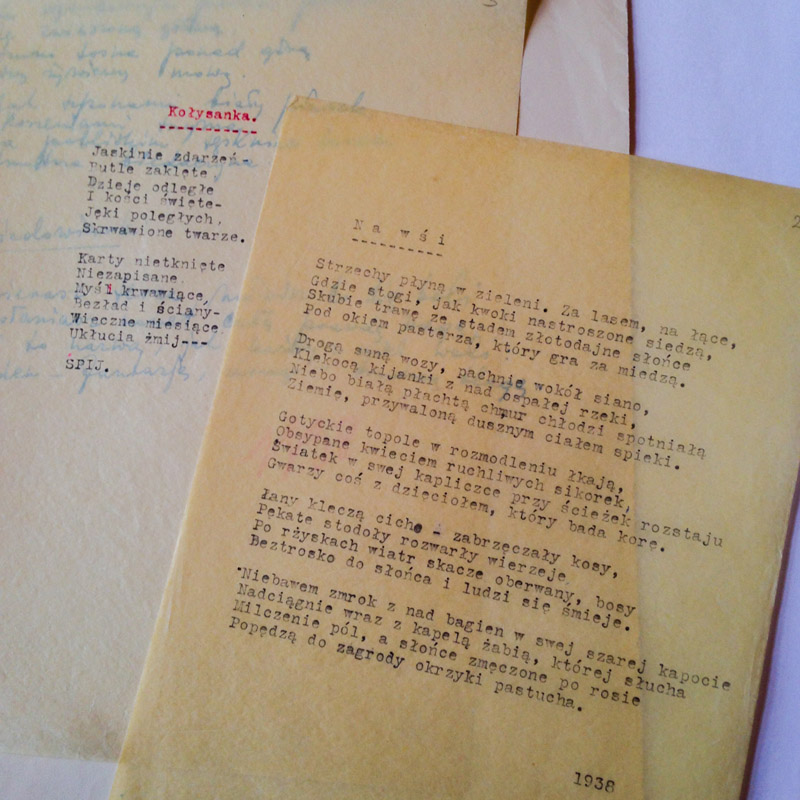 Kołysanka.
Jaskinie zdarzeń-
Putle zaklęte,
Dzieje odległe
I kości święte-
Jęki poległych,
Skrwawione twarze.
Karty nietknięte
Niezapisane,
Myśl krwawiące,
Bezład i ściany-
Wieczne miesiące,
Ukłucia żmij---
ŚPIJ.
2
Na wśi
Strzechy płyną w zieleni. Za lasem, na łące,
Gdzie stogi, jak kwoki nastroszone siędzą,
Skubie trawę ze stadem złotodajne słońce
Pod okiem pasterza, który gra za miedzą.
Drogą suną wozy, pachnie wokół siano,
Klekocą kijanki z nad ospałej rzeki,
Niebo białą płachtą chmur chłodzi spotniałą
Ziemię, przywaloną dusznym ciałem spieki.
Gotyckie topole w rozmodleniu łkają,
Obsypane kwieciem ruchliwych sikorek,
Światek w swej kapliczce przy ścieżek rozstaju
Gwarzy coś z dzięciołem, który bada korę.
Łany klęczą cicho - zabrzęczały kosy,
Pękate stodoły rozwarły wierzeje,
Po rżyskach wiatr skacze oberwany, bosy
Beztrosko do słońca i ludzi się śmieje.
Niebawem zmrok z nad bagien w swej szarej kapocie
Nadciągnie wraz z kapelą żabią, której słucha
Milczenie pól, a słońce zmęczone po rosie
Popędzą do zagrody okrzyki pastucha.
1938